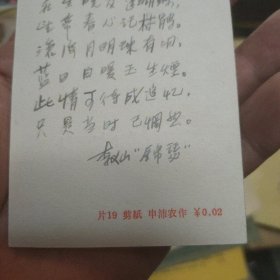 庄生晓梦迷蝴蝶，
望帝春心託杜鹃。
沧海月明珠有泪，
蓝田日暖玉生煙。
此情可待成追忆，
只是当时已惘然。
李义山“锦瑟”
片19 剪紙 申沛农作 ￥0.02